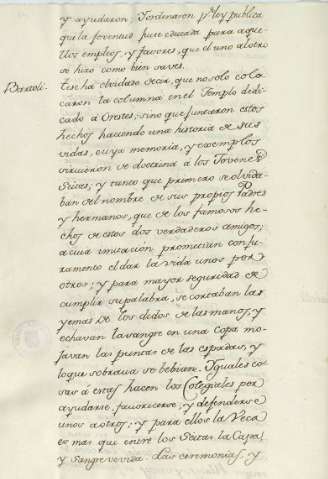 y ayudaron, y ordenaron pr ley publica
q.e la joventud fuese educada para aque-
llos empleos, y favores, que el uno al otro
se hizo como bien saves.
Bertoli. Te se há olvidado decir, que no solo colo
caron la columna en el Templo dedi
cado á Orestes; sino que juntaron estos
hechos haciendo una historia de sus
vidas, cuya memoria, y exemplos
sirvieron de doctrina á los Jovenes
Scitas, y tanto que primero se olvida
ban del nombre de sus propios Padres
y hermanos, que de los famosos he-
chos de estos dos verdaderos amigos;
a cuia imitacion prometian con ju-
ramento el dar la vida unos por
otros; y para mayor seguridad de
cumplir su palabra, se cortaban las
yemas de los dedos de las manos, y
echavan la sangre en una copa mo-
javan las puntas de las espadas, y
lo que sobrava se bebian. Yguales co
sas á estas hacen los Colegiales por
ayudarse, favorecerse, y defenderse
unos a otros; y para ellos la Veca
es mas que entre los Scitas la Copa,
y sangre vevida. Las ceremonias, y